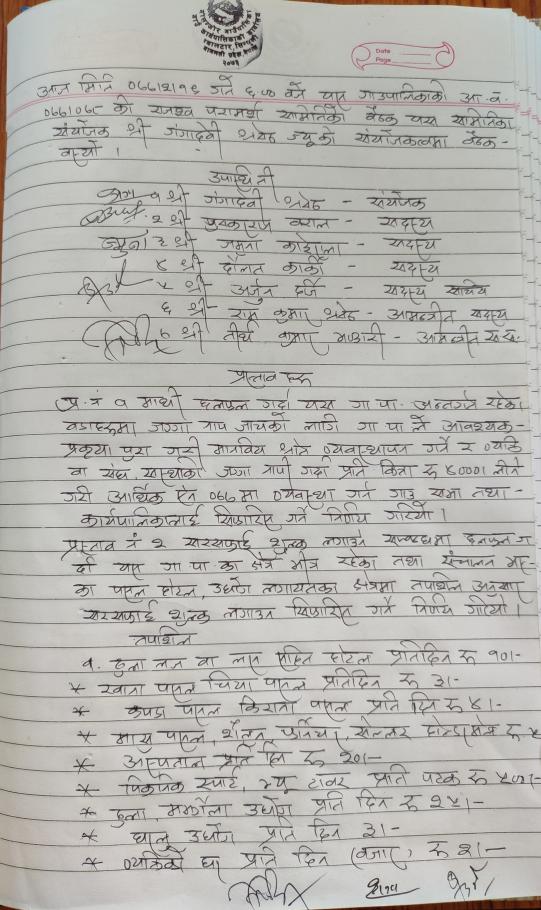 Date
Page
आज मिति ०७७।२।१६ गते ६.०० बजे यस गाउपालिकाको आ.व.
०७७।०७८ को राजश्व परामर्श समितिको बैठक यस समितिका
संयोजक श्री गंगादेवी श्रेष्ठ ज्यूको संयोजकत्वमा बैठक -
बस्यो ।
उपस्थिती
१ श्री गंगादेवी श्रेष्ठ - संयोजक
२ श्री पुस्कारराज वराल - सदस्य
जमुना ३ श्री जमुना कोइराला - सदस्य
४ श्री दौलत कार्की - सदस्य
५ श्री अर्जुन दर्जि - सदस्य सचिव
६ श्री राम कुमार श्रेष्ठ - आमन्त्रीत सदस्य
७ श्री तीर्थ कुमार भण्डारी - आमन्त्रीत स.
प्रस्ताव हरु
प्र. नं १ माथी छलफल गर्दा यस गा.पा. अन्तर्गत रहेका
वडाहरुमा जग्गा नाप जाँचको लागि गा पा ले आवश्यक-
प्रकृया पुरा गरी मानविय श्रोत व्यवस्थापन गर्ने र व्यक्ति
वा संघ, सस्थाको जग्गा नापी गर्दा प्रति कित्ता रु ५०००। लीने
गरी आर्थिक ऐन ०७७ मा व्यवस्था गर्न गाउ सभा तथा -
कार्यपालिकालाई सिफारिस गर्ने निर्णय गरियो ।
प्रस्ताव नं २ सरसफाई शुल्क लगाउन सम्बन्धमा छलफल ग
र्दा यस गा.पा.का क्षेत्र भीत्र रहेका तथा संचालन भए
का पसल होटल, उद्योग लगायतका क्षेत्रमा तपशिल अनुसार
सरसफाई शुल्क लगाउन सिफारिस गर्ने निर्णय गरियो ।
तपशिल
१. ठुला लज वा लज सहित होटेल प्रतिदिन रु १०।-
* खाजा पसल चिया पसल प्रतिदिन रु ३।-
* कपडा पसल किराना पसल प्रति दिन रु ५।-
* मासु पसल, शैलुन, फर्निचर, रु ५
* अस्पताल प्रति दिन रु २०।-
* पिकनिक स्पोर्ट, भ्यू टावर प्रति पटक रु ५००।-
* ठुला, मझौला उद्योग प्रति दिन रु २५।-
* घरेलु उद्योग प्रति दिन ३।-
* व्यक्तिको घर प्रति दिन (बजार) रु २।-